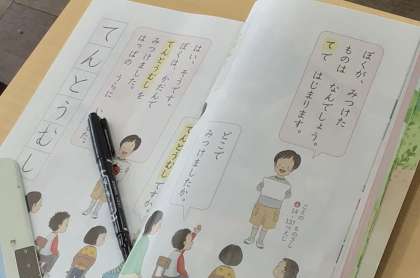 ぼくが、みつけた
ものは なんでしょう。
てで はじまります。
てんとうむしですか。
どこで
みつけましたか。
はい、そうです。
ぼくは、かだんで
てんとうむしを
みつけました。
はっぱの うらに
てんとうむし